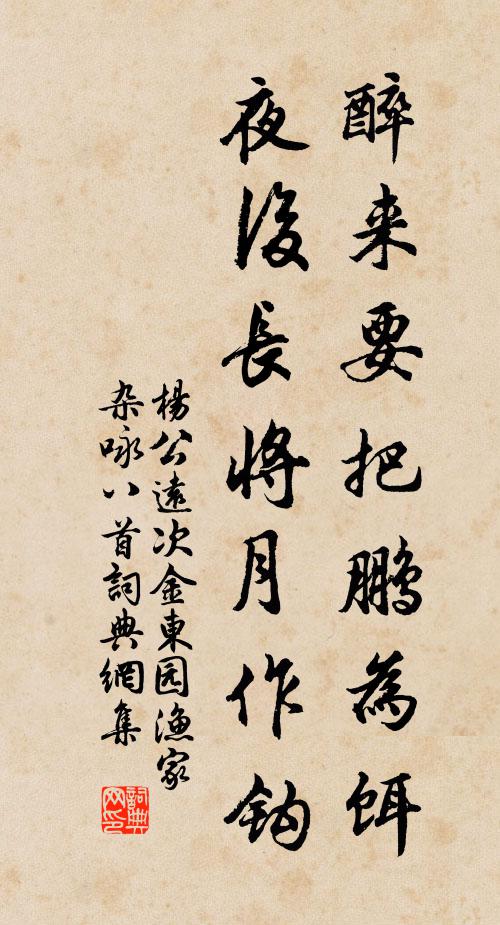 醉来要把鹏為餌
夜後長將月作鈎
楊公遠次金東园漁家
杂咏八首詞典網集
詞典
网印